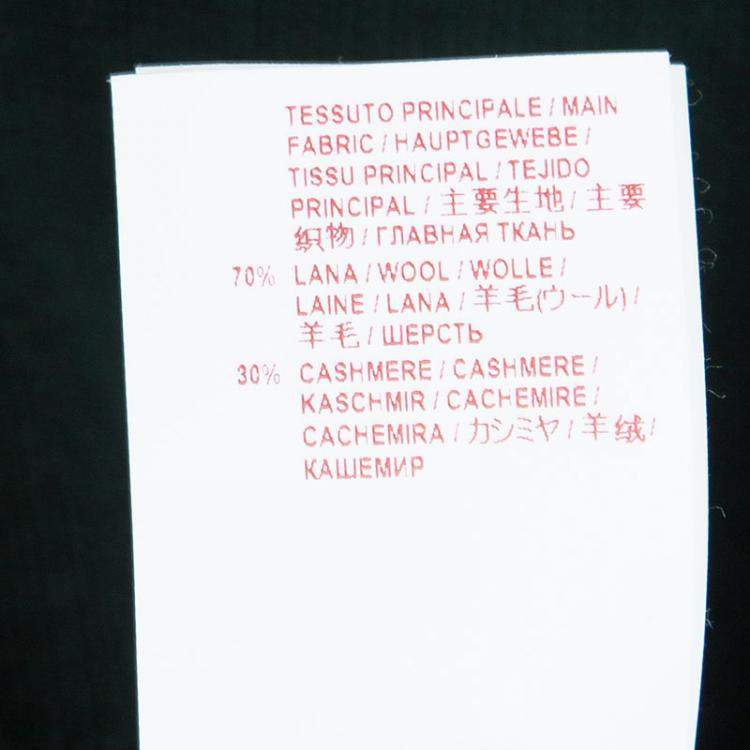 TESSUTO PRINCIPALE / MAIN
FABRIC / HAUPTGEWEBE /
TISSU PRINCIPAL / TEJIDO
PRINCIPAL / 主要生地 / 主要
织物 / ГЛАВНАЯ ТКАНЬ
70% LANA / WOOL / WOLLE /
LAINE / LANA / 羊毛(ウール) /
羊毛 / ШЕРСТЬ
30% CASHMERE / CASHMERE /
KASCHMIR / CACHEMIRE /
CACHEMIRA / カシミヤ / 羊绒 /
КАШЕМИР